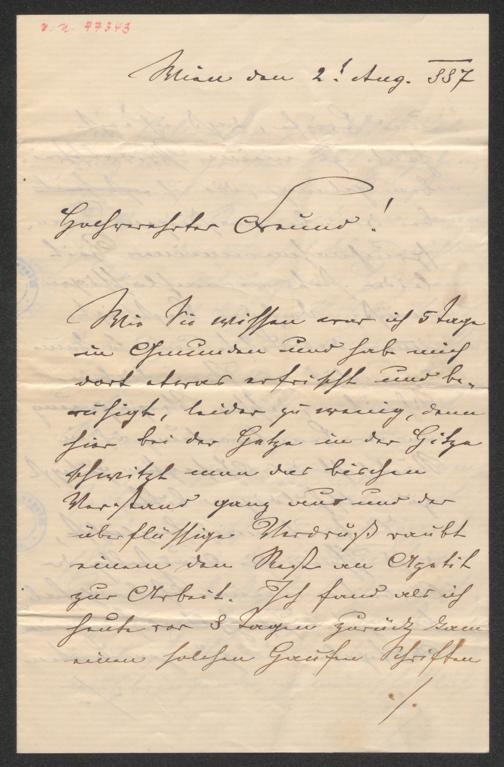 V. N. 97343
Wien den 2t Aug. 887
Hochverehrter Freund!
Wie Sie wissen war ich 5 Tage
in Gmunden und habe mich
dort etwas erfrischt und be-
ruhigt, leider zu wenig, denn
hier bei der Hetze in der Hitze
schwitzt man das bischen
Verstand ganz aus und der
überflüssige Verdruß raubt
einem den Rest an Apetit
zur Arbeit. Ich fand als ich
heute vor 8 Tagen zurück kam
einen solchen Haufen Schriften
./.